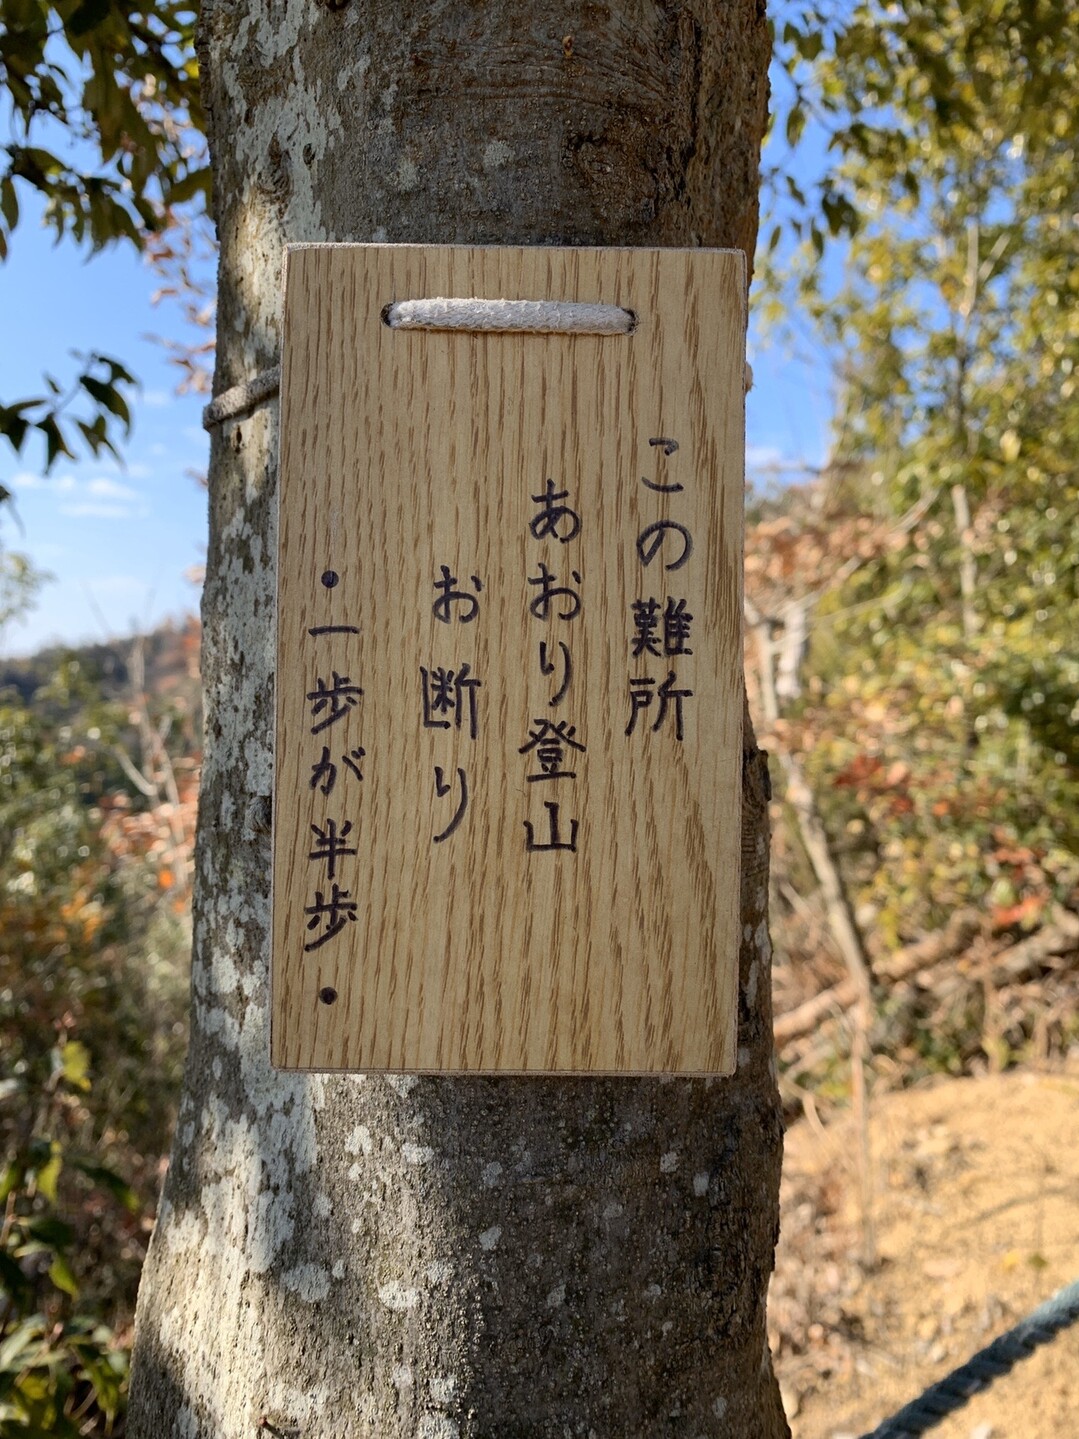 この難所
あおり登山
お断り
・一歩が半歩・